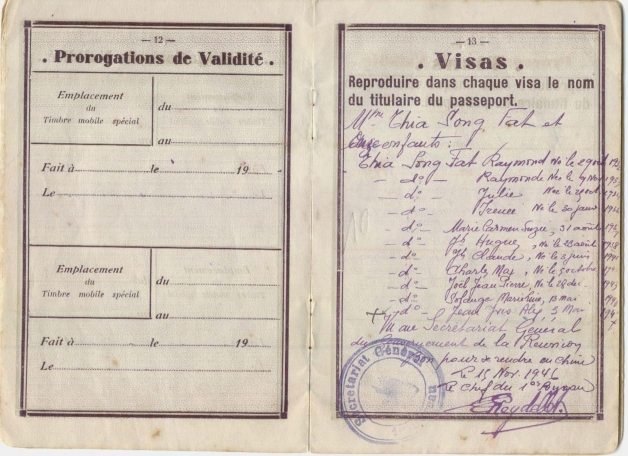 — 12 —
. Prorogations de Validité .
Emplacement
du
Timbre mobile spécial
du
au
Fait à le 19
Le
Emplacement
du
Timbre mobile spécial
du
au
Fait à le 19
Le
— 13 —
. Visas .
Reproduire dans chaque visa le nom
du titulaire du passeport.
Mme Thia Song Fat et
enfants :
Thia Song Fat Raymond Né le 29
— do — Raymonde Née le
— do — Julie Née le
— do — Né le 30 janv
— do — Marie Carmen 31 août
— do — Jh Hugue, Né le 23 août
— do — Jh Claude, Né le 2 juin
— do — Charle Max, Né le 5 octobre
— do — Joël Jean Pierre Né le 28 déc.
— do — Solange 13 mai
— do — Jean Yves 5 Mar
Vu au Secrétariat Général
du Gouvernement de la Réunion
bon pour se rendre en Chine
le 15 Nov. 1946
Le Chef du 1er Bureau
Secrétariat Général